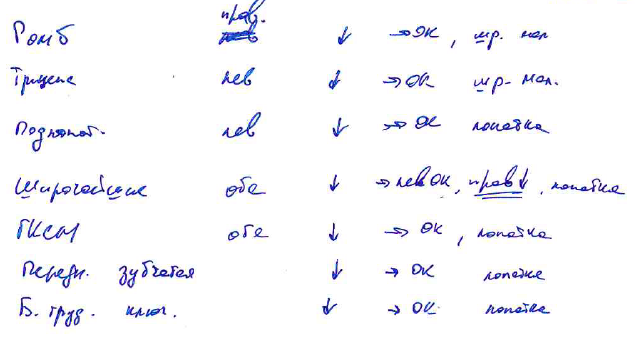 Ромб прав. ↓ → ОК, шр. мал
Трицепс лев ↓ → ОК шр. мал.
Подлопат. лев ↓ → ОК лопатка
Широчайшие оба ↓ → лев ОК, прав ↓, лопатка
ГКСМ оба ↓ → ОК, лопатка
Передн. зубчатая ↓ → ОК лопатка
Б. груд. ключ. ↓ → ОК. лопатка